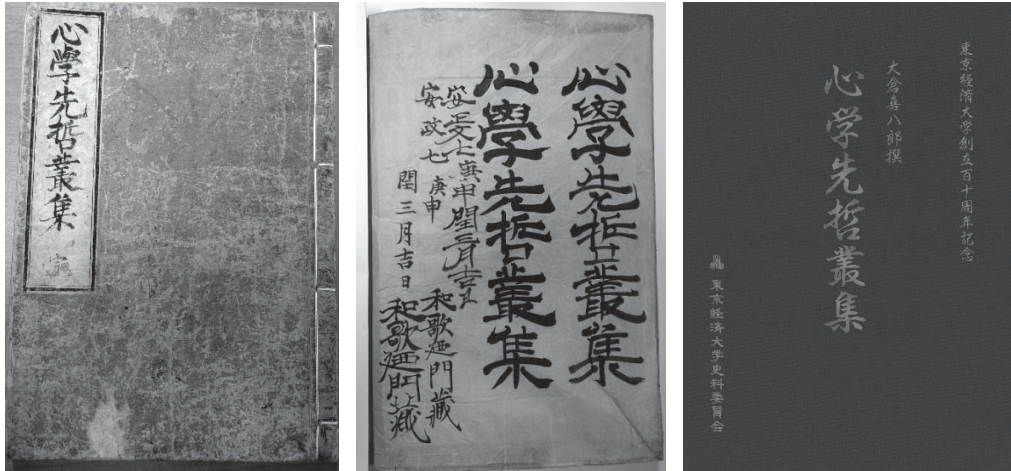 心學先哲叢集
心學先哲叢集
心學先哲叢集
安政七庚申閏三月吉旦
和歌廼門藏
安政七庚申
閏三月吉日
和歌廼門藏
東京経済大学創立百十周年記念
大倉喜八郎撰
心学先哲叢集
東京経済大学史料委員会